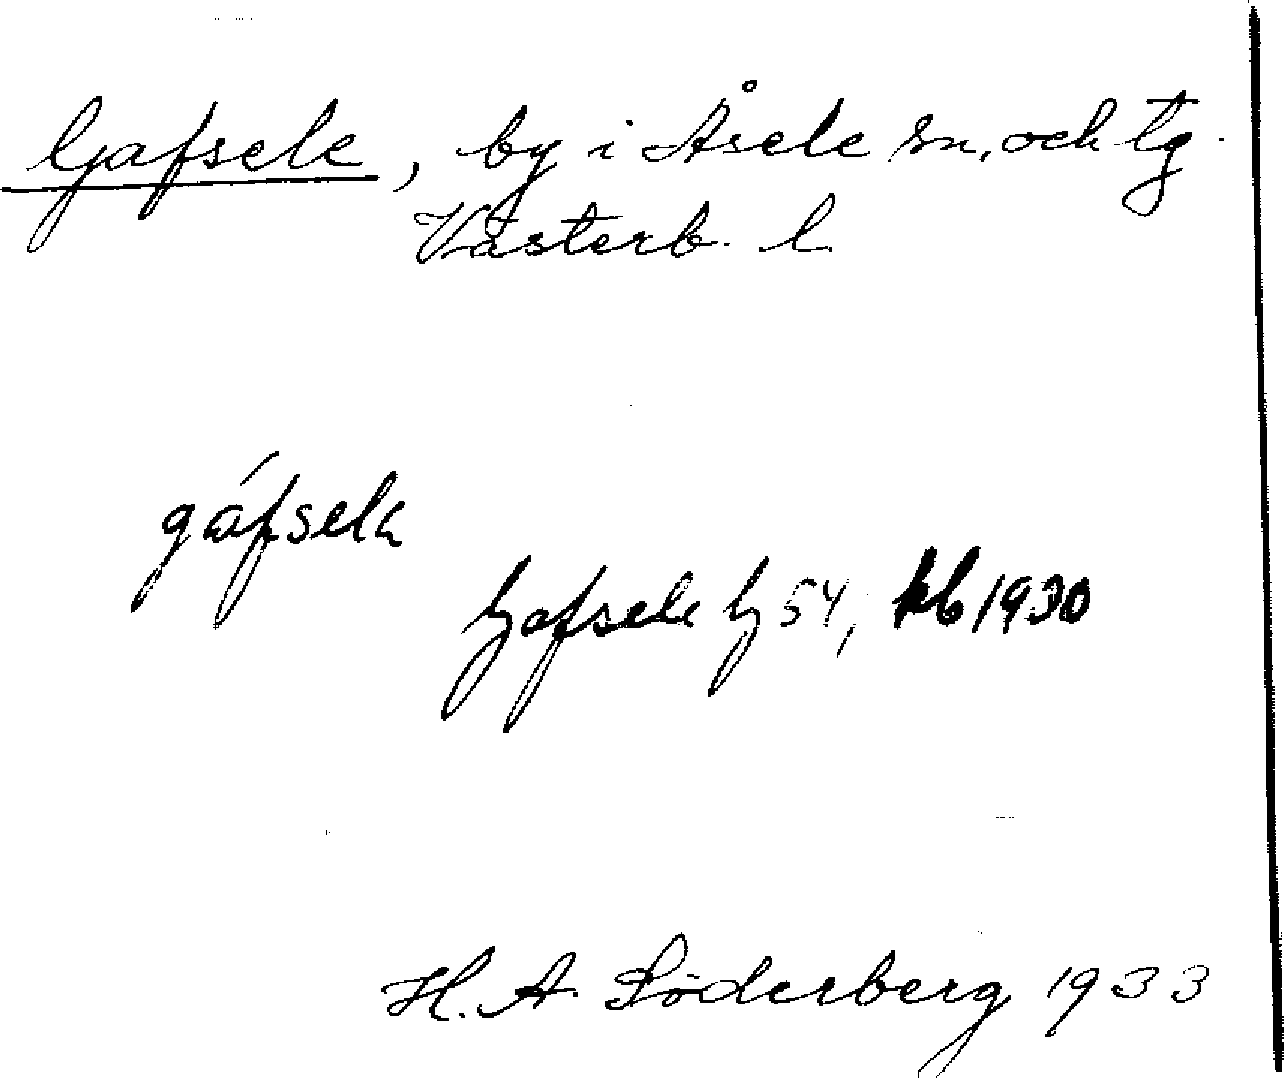 Gafsele, by i Åsele sn. och tg.
Västerb. l.
gáfsela
Gafsele G 54, kb 1930
H. A. Söderberg 1933